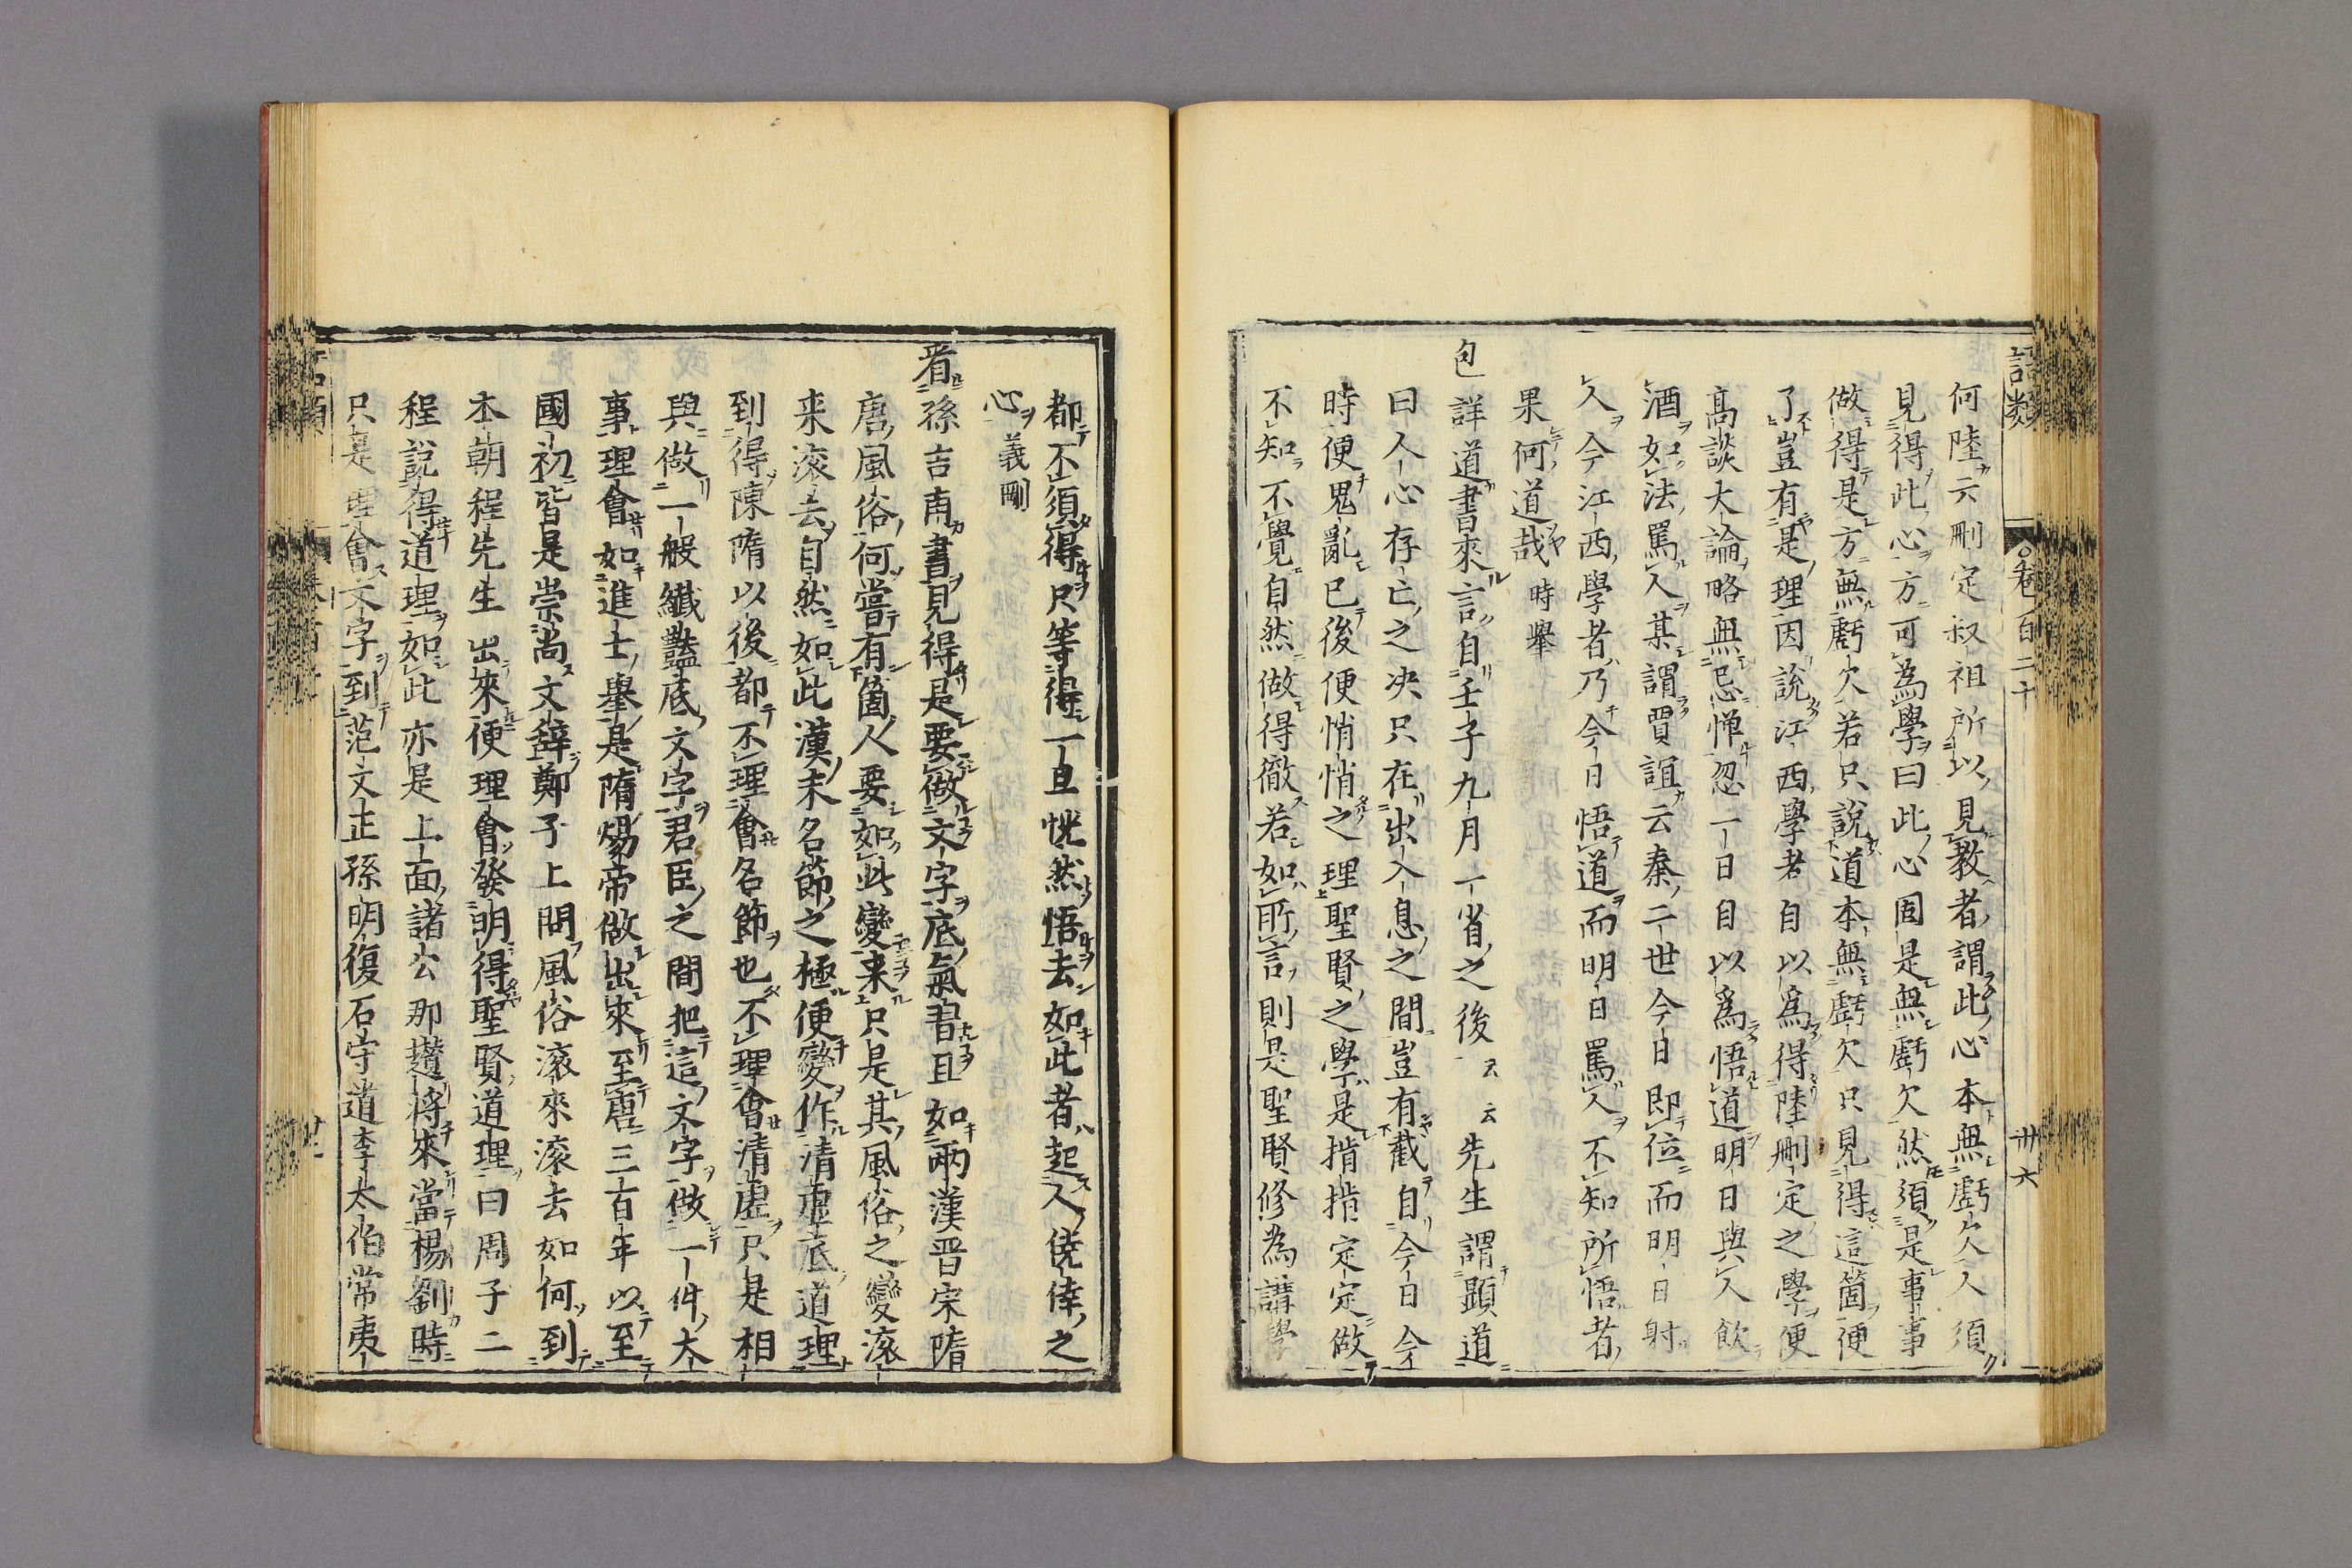 語類
卷百二十
卅六
何陸云刪定叔祖所以見教者謂此心本無虧欠人須
見得此心方可為學曰此心固是無虧欠然須是事事
做得是方無虧欠若只說道本無虧欠只見得這箇便
了豈有是理因說江西學者自以爲得陸刪定之學便
高談大論略無忌憚忽一日自以爲悟道明日與人飲
酒如法罵人某謂賈誼云秦二世今日即位而明日射
人今江西學者乃今日悟道而明日罵人不知所悟者
果何道哉時舉
包詳道書來言自壬子九月一省之後云云先生謂顯道
曰人心存亡之决只在出入息之間豈有截自今日今
時便鬼亂已後便悄悄之理聖賢之學是揩揩定定做
不知不覺自然做得徹若如所言則是聖賢修為講學
都不須得只等得一旦恍然悟去如此者起人僥倖之
心義剛
看孫吉甫書見得是要做文字底氣習且如兩漢晋宋隋
唐風俗何嘗有箇人要如此變來只是其風俗之變滚
來滚去自然如此漢末名節之極便變作清虛底道理
到得陳隋以後都不理會名節也不理會清虛只是相
與做一般纎豔底文字君臣之間把這文字做一件大
事理會如進士舉是隋煬帝做出來至唐三百年以至
國初皆是崇尚文辭鄭子上問風俗滚來滚去如何到
本朝程先生出來便理會發明得聖賢道理曰周子二
程說得道理如此亦是上面諸公那趲將來當楊劉時
只是理會文字到范文正孫明復石守道李太伯常夷